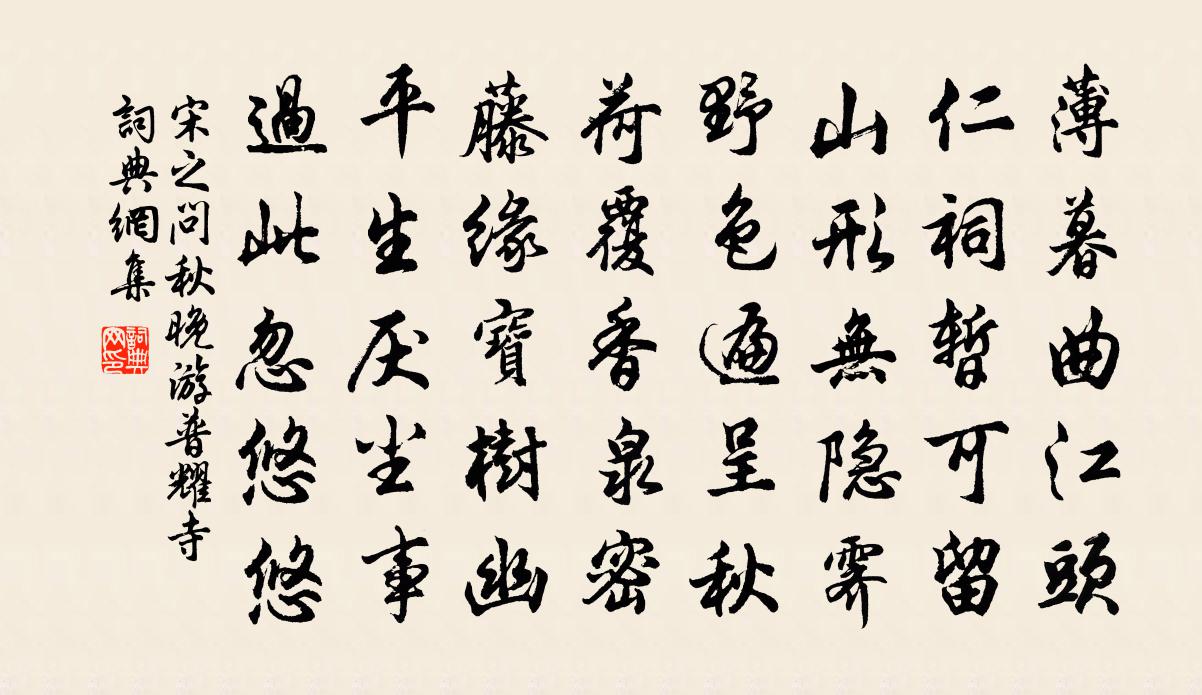 薄暮曲江頭
仁祠暫可留
山形無隐霁
野色遍呈秋
荷覆香泉密
藤缘寶樹幽
平生厌尘事
過此忽悠悠
宋之问秋晚游普耀寺
詞典網集
詞典网印